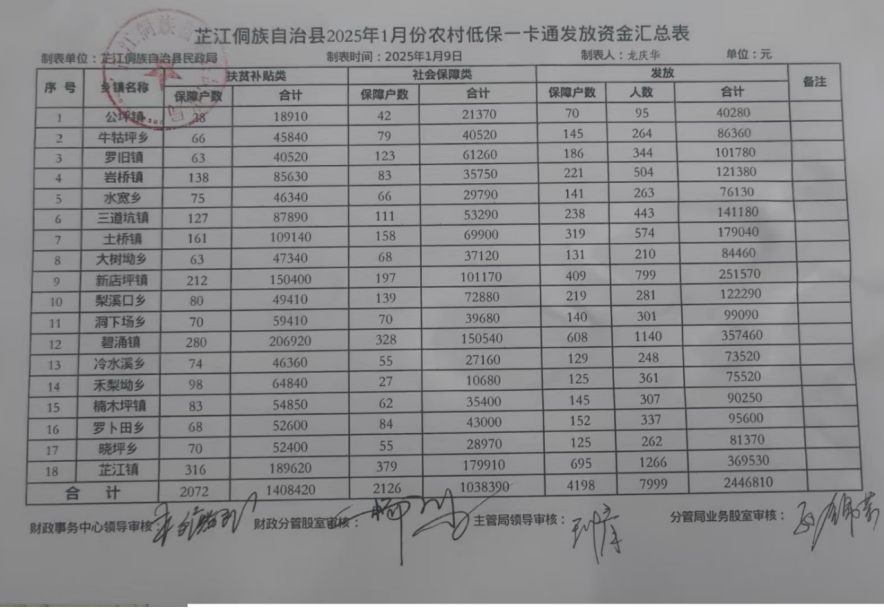 芷江侗族自治县2025年1月份农村低保一卡通发放资金汇总表
制表单位：芷江侗族自治县民政局 制表时间：2025年1月9日 制表人：龙庆华 单位：元
序 号 乡镇名称 扶贫补贴类 社会保障类 发放 备注
保障户数 合计 保障户数 合计 保障户数 人数 合计
1 公坪镇 28 18910 42 21370 70 95 40280
2 牛牯坪乡 66 45840 79 40520 145 264 86360
3 罗旧镇 63 40520 123 61260 186 344 101780
4 岩桥镇 138 85630 83 35750 221 504 121380
5 水宽乡 75 46340 66 29790 141 263 76130
6 三道坑镇 127 87890 111 53290 238 443 141180
7 土桥镇 161 109140 158 69900 319 574 179040
8 大树坳乡 63 47340 68 37120 131 210 84460
9 新店坪镇 212 150400 197 101170 409 799 251570
10 梨溪口乡 80 49410 139 72880 219 281 122290
11 洞下场乡 70 59410 70 39680 140 301 99090
12 碧涌镇 280 206920 328 150540 608 1140 357460
13 冷水溪乡 74 46360 55 27160 129 248 73520
14 禾梨坳乡 98 64840 27 10680 125 361 75520
15 楠木坪镇 83 54850 62 35400 145 307 90250
16 罗卜田乡 68 52600 84 43000 152 337 95600
17 晓坪乡 70 52400 55 28970 125 262 81370
18 芷江镇 316 189620 379 179910 695 1266 369530
合 计 2072 1408420 2126 1038390 4198 7999 2446810
财政事务中心领导审核： 财政分管股室审核： 主管局领导审核： 分管局业务股室审核：